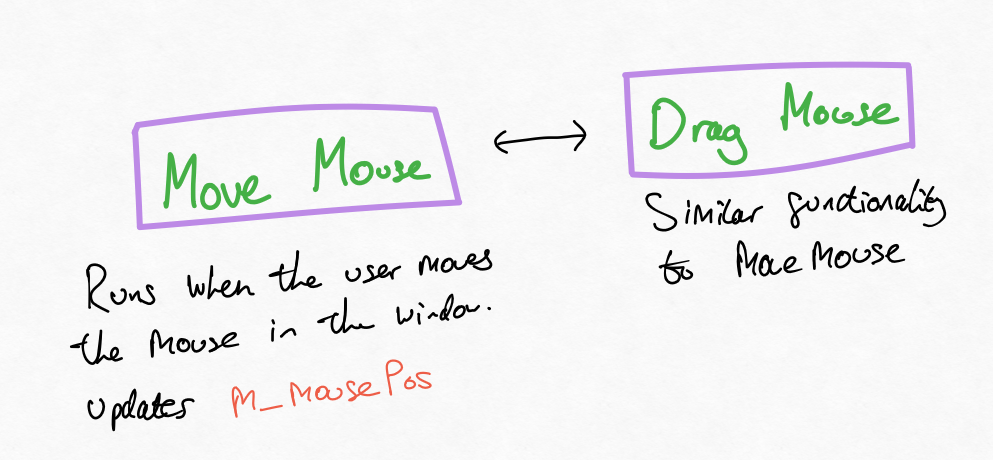 Move Mouse
Drag Mouse
Runs when the user moves
the mouse in the window.
updates M_MousePos
Similar functionality
to MoveMouse